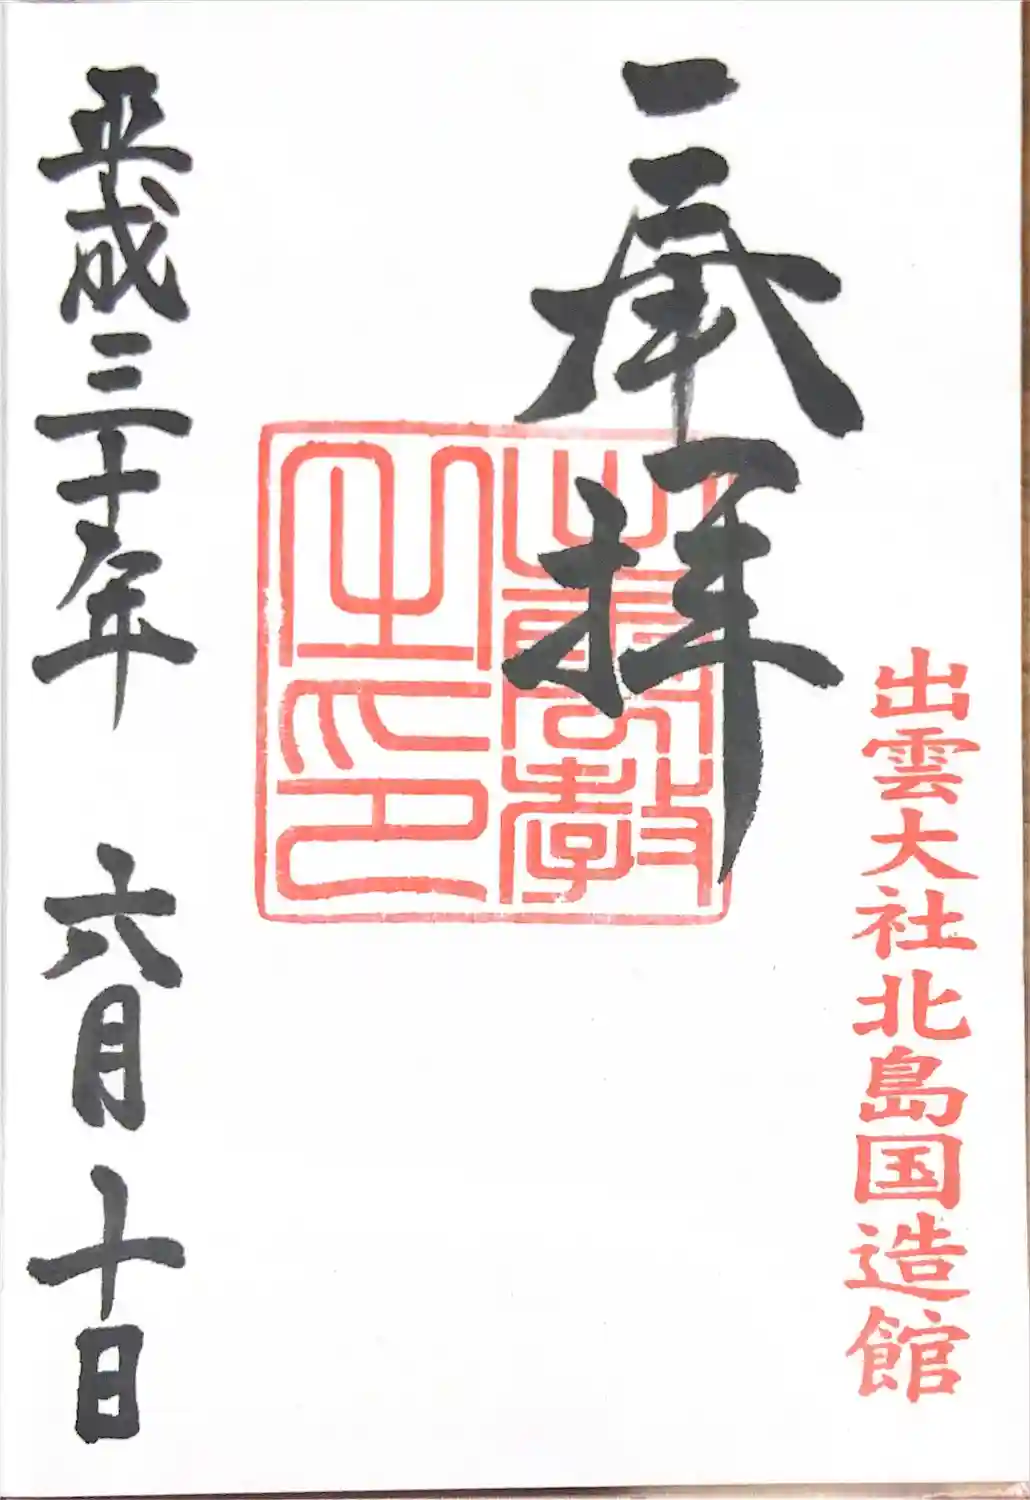 出雲大社北島国造館
奉拝
出雲教
之印
平成三十年 六月十日